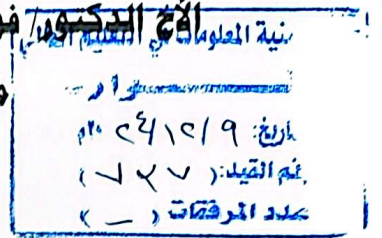 الأخ الدكتور/
نية المعلومات في التعليم العالي
وارد
اريخ: ٢٤/٢/٩ ٢٠م
قم القيد: ( ٧٢٧ )
عدد المرفقات ( — )